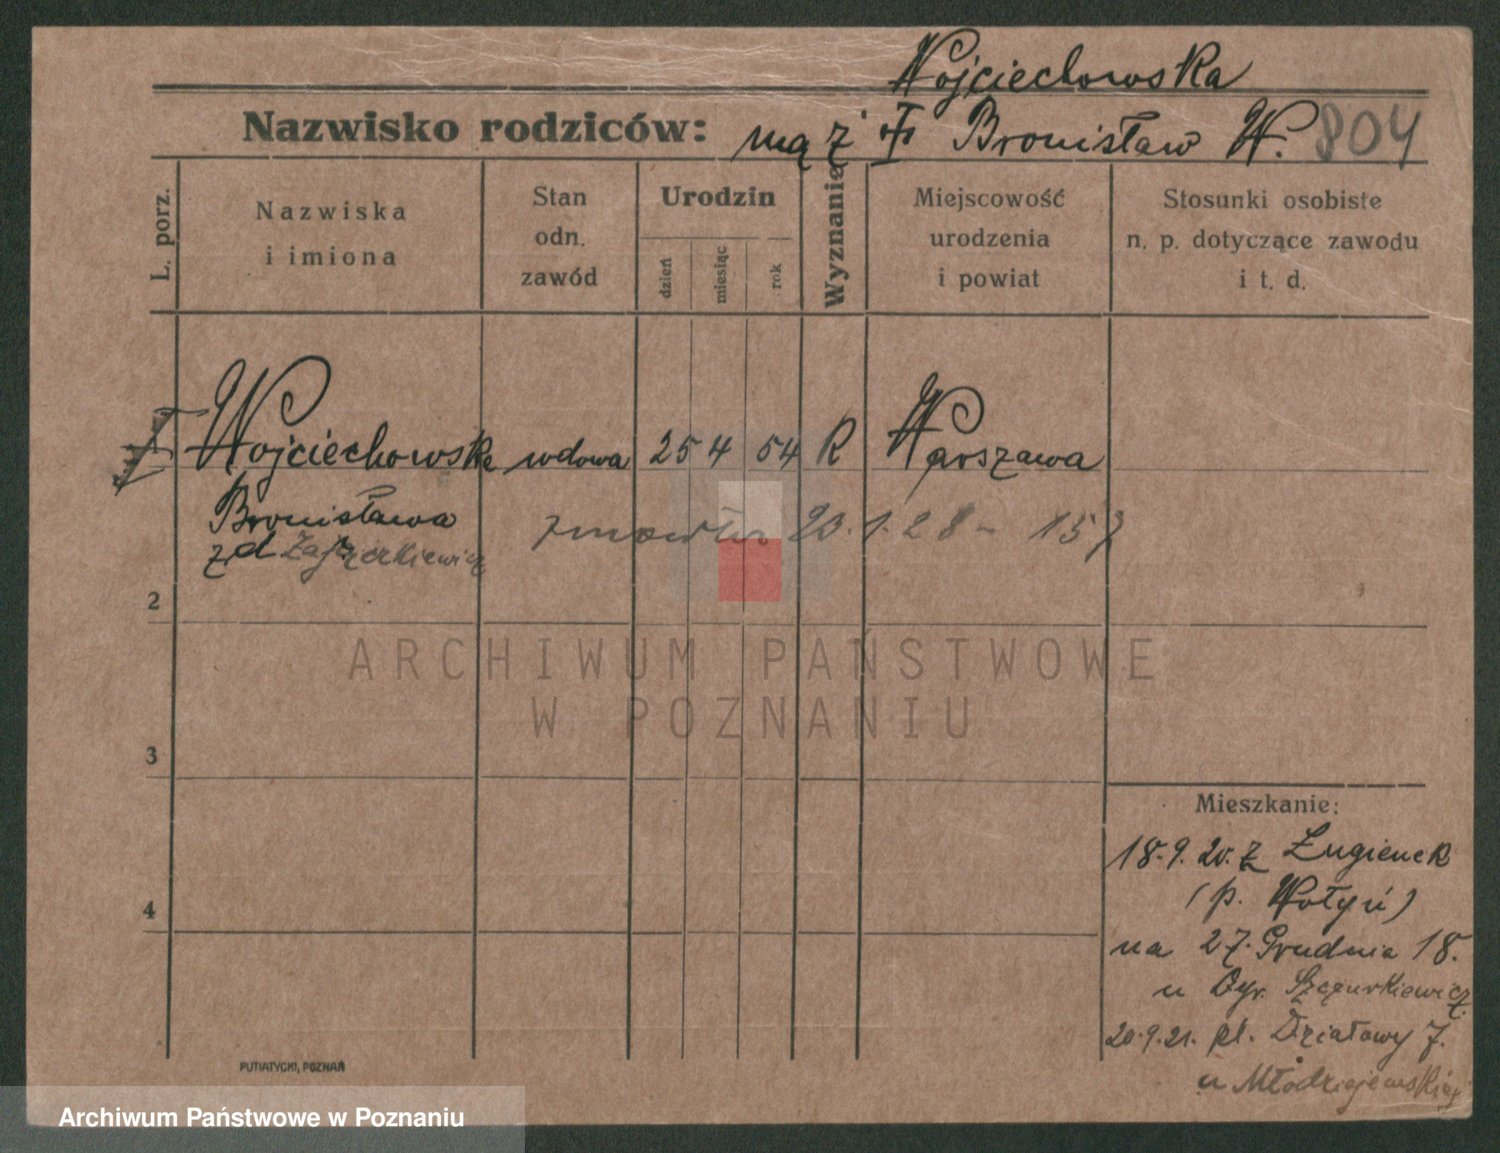 Wojciechowska
Nazwisko rodziców: mąż Bronisław W. 804
L. porz.
Nazwiska
i imiona
Stan
odn.
zawód
Urodzin
dzień
miesiąc
rok
Wyznanie
Miejscowość
urodzenia
i powiat
Stosunki osobiste
n. p. dotyczące zawodu
i t. d.
Wojciechowska wdowa 25 4 54 R Warszawa
Bronisława
zd
20. 1. 28 - 157
2
3
4
Mieszkanie:
18.9.20. z
(p. Wołyń)
na 27. Grudnia 18.
u Dyr.
20.9.21. pl. Działowy 7.
u Młodziejewskiej
PUTIATYCKI, POZNAŃ
ARCHIWUM PAŃSTWOWE
W POZNANIU
Archiwum Państwowe w Poznaniu